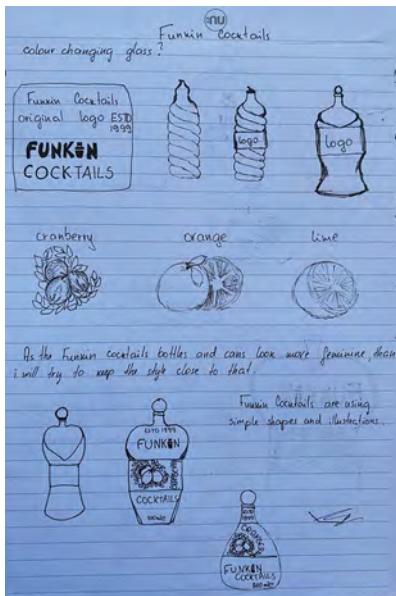 :nu
Funkin Cocktails
colour changing glass?
Funkin Cocktails
original logo ESTD
1999
FUNKIN
COCKTAILS
logo
logo
cranberry
orange
lime
As the Funkin cocktails bottles and cans look more feminine, than
i will try to keep the style close to that.
Funkin Cocktails are using
simple shapes and illustrations.
ESTD 1999
FUNKIN
COCKTAILS
ESTD
1999
FUNKIN
COCKTAILS